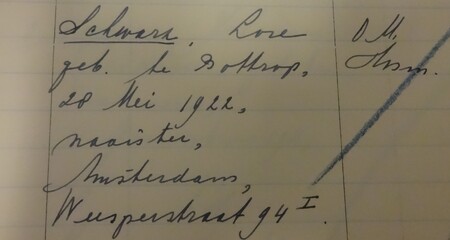 Schwarz, Lore
geb. te Bottrop,
28 Mei 1922,
naaister,
Amsterdam,
Weesperstraat 94 I.
O.M.